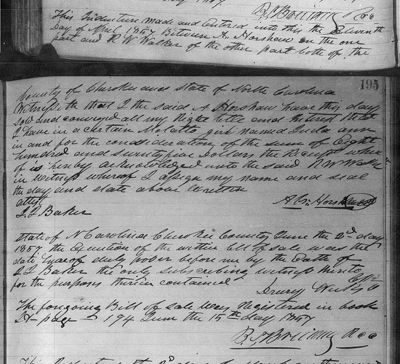 This Indenture made and entered into this the Eleventh
day of 1857 Between A. Horshaw on the one
part and R W Walker of the other part both of the
195
County of Cherokee and State of North Carolina
Witnesseth that I the said A Horshaw have this day
Sold and conveyed all my Right title and interest that
I have in a certain Molatto girl named Luda ann
in and for the consideration of the sum of Eight
hundred and seventy five Dollars the
is hereby acknowledged unto the said R W
in witness whereof I assign my name and seal
the day and date above written
attest
A. Horshaw
J J Baker
State of N Carolina Cherokee County June the 2d day
1857 the Execution of the within bill of sale was this
date duly proven before me by the Oath of
J J Baker the only subscribing witness thereto
for the purposes therein contained
Drewry
The foregoing Bill of sale was Registered in book
H page 194 June the 15th day 1857